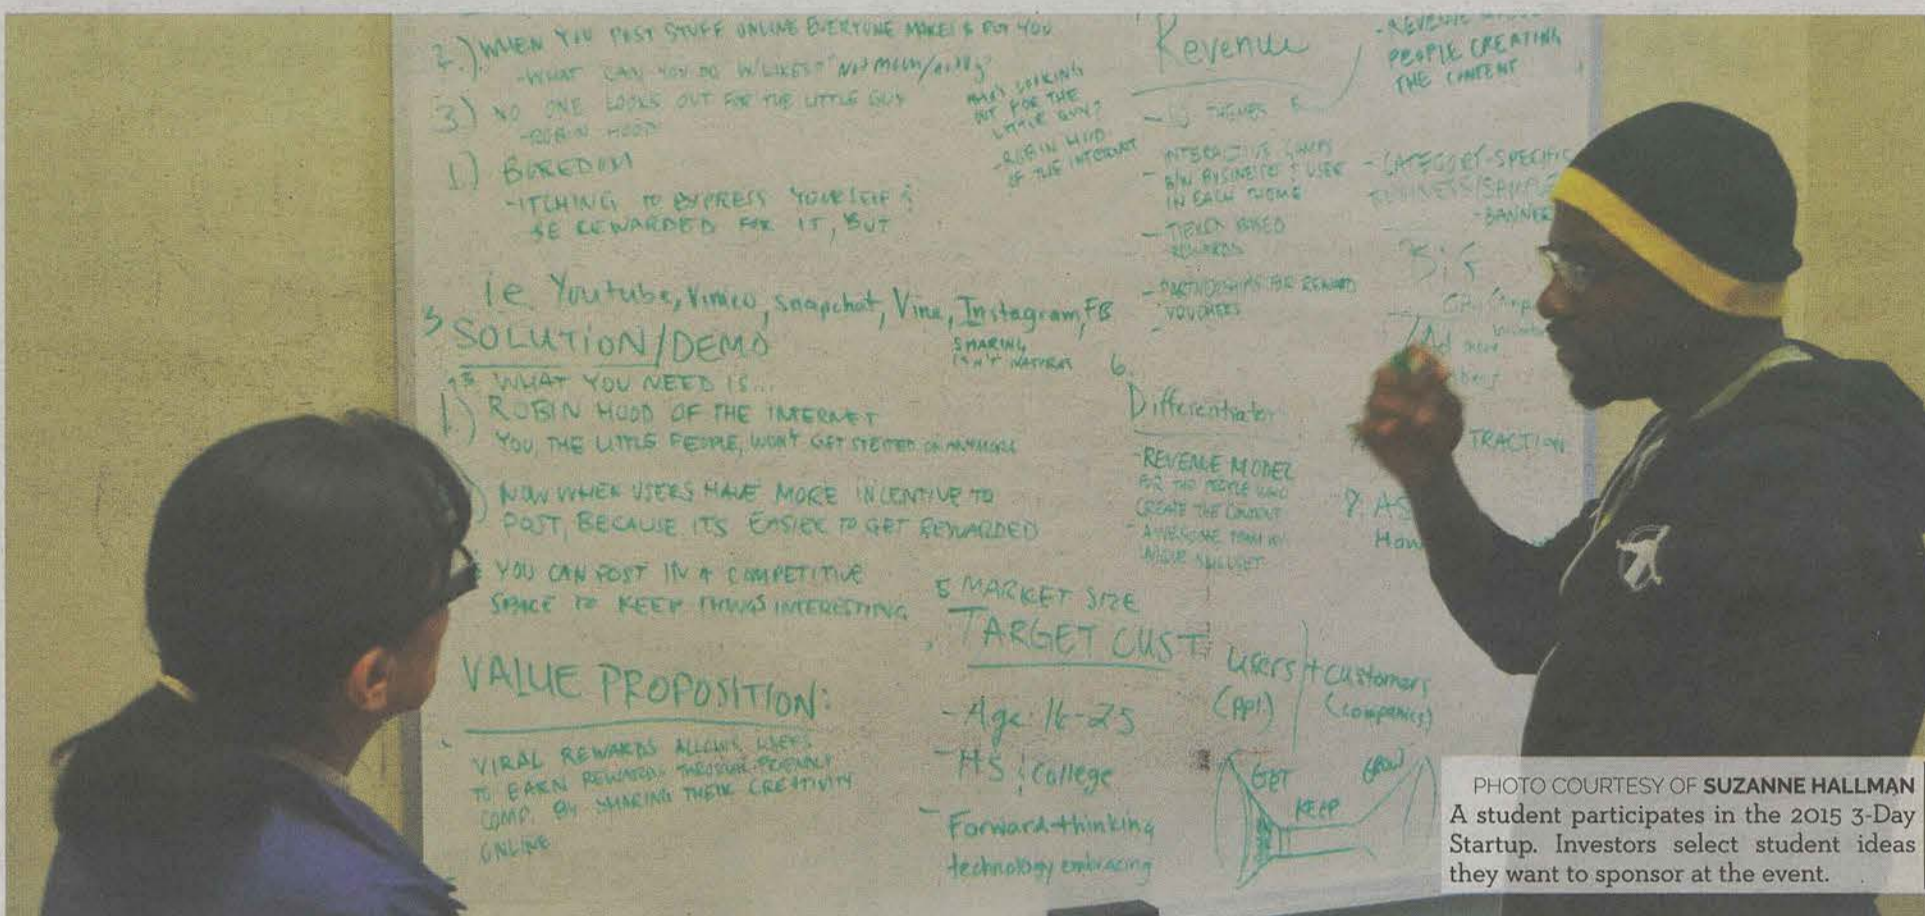 2.) WHEN YOU POST STUFF ONLINE EVERYONE MAKES $ BUT YOU
-WHAT CAN YOU DO W/LIKES?
3.) NO ONE LOOKS OUT FOR THE LITTLE GUY
-ROBIN HOOD
1.) BOREDOM
-ITCHING TO EXPRESS YOURSELF &
BE REWARDED FOR IT, BUT
WHO'S LOOKING
OUT FOR THE
LITTLE GUY?
-ROBIN HOOD
OF THE INTERNET
i.e. Youtube, Vimeo, snapchat, Vine, Instagram, FB
SHARING
ISN'T NATURAL
3 SOLUTION/DEMO
WHAT YOU NEED IS...
1.) ROBIN HOOD OF THE INTERNET
YOU, THE LITTLE PEOPLE, WON'T GET ANYMORE
NOW WHEN USERS HAVE MORE INCENTIVE TO
POST, BECAUSE ITS EASIER TO GET REWARDED
YOU CAN POST IN A COMPETITIVE
SPACE TO KEEP THINGS INTERESTING
VALUE PROPOSITION:
VIRAL REWARDS ALLOWS USERS
TO EARN REWARDS THROUGH FRIENDLY
COMP. BY SHARING THEIR CREATIVITY
ONLINE
Revenue
- 10 THEMES
- INTERACTIVE
B/W BUSINESS & USER
IN EACH THEME
- TIERED BASED
REWARDS
- PARTNERSHIPS FOR REWARD
VOUCHERS
- REVENUE
PEOPLE CREATING
THE CONTENT
- CATEGORY-SPECIFIC
BUSINESS/SAMPLE
- BANNER
6.
Differentiator
-REVENUE MODEL
FOR THE PEOPLE WHO
CREATE THE CONTENT
- AWESOME TEAM W/
UNIQUE SKILLSET
7 Ad
TRACTION
8. AS
How
5 MARKET SIZE
TARGET CUST
- Age: 16-25
- HS & College
- Forward-thinking
technology embracing
users + customers
(ppl) (companies)
GET
KEEP
GROW
PHOTO COURTESY OF SUZANNE HALLMAN
A student participates in the 2015 3-Day
Startup. Investors select student ideas
they want to sponsor at the event.